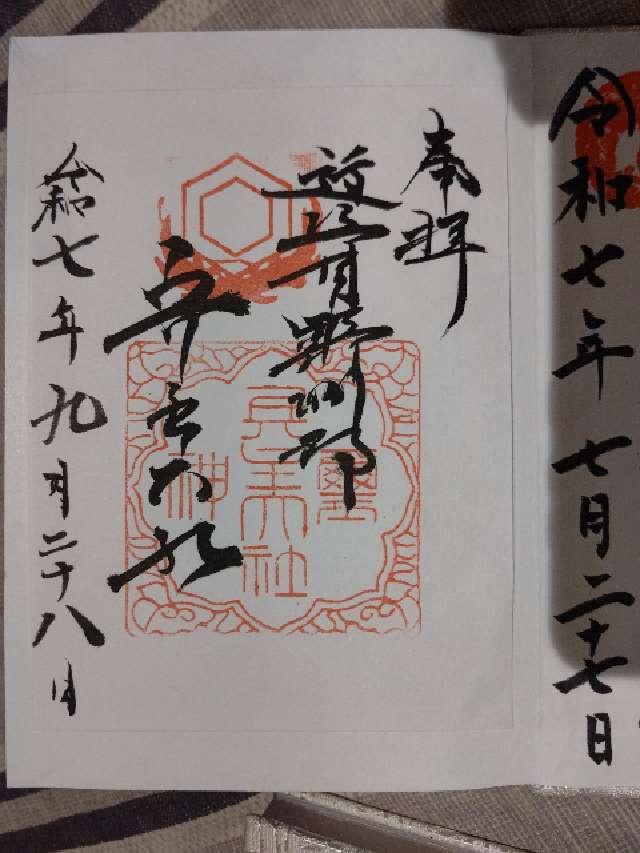 令和七年七月二十七日
奉拝
近江国野洲郡
兵主大社
兵主大社
神璽
令和七年九月二十八日